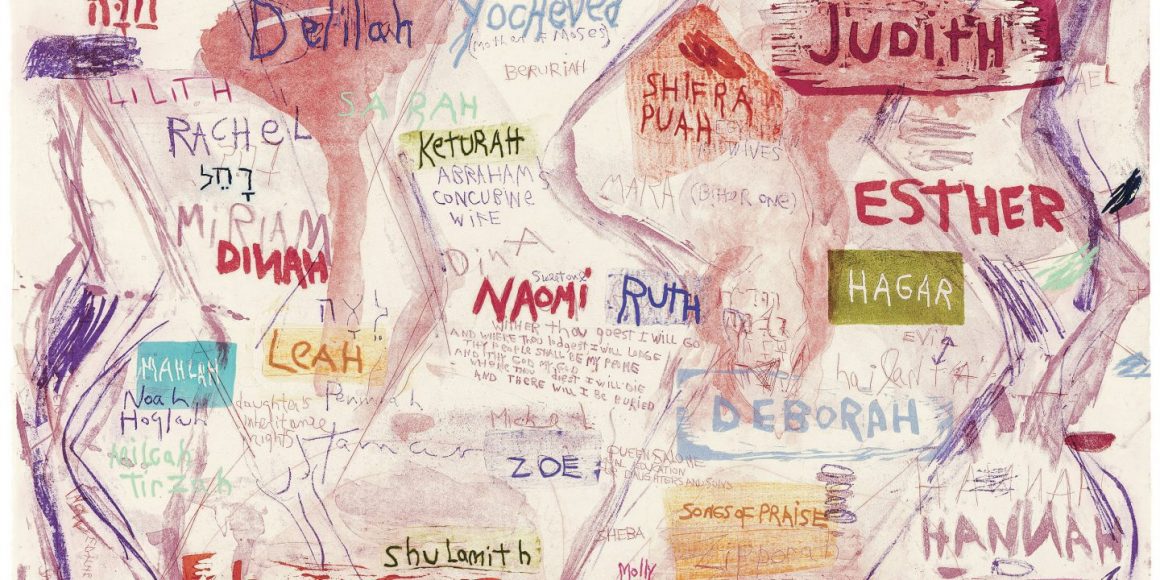 Delillah
Yocheved
(Mother of Moses)
BERURIAH
JUDITH
LILITH
SARAH
SHIFRA
PUAH
MIDWIVES
RACHEL
רָחֵל
KETURAH
ABRAHAMS
CONCUBINE
WIFE
MARA (Bitter one)
ESTHER
MiRiAM
DINAH
DinA
Sweetone
NAOMi
RUTH
HAGAR
WITHER thou goest I WILL GO
AND WHERE THOU lodgest I WILL LODGE
THY PEOPLE SHALL BE MY PEOPLE
AND THY GOD MY GOD
WHERE THOU diest I WILL DIE
AND THERE WILL I BE BURIED
לֵאָה
LEAH
EVE
MAHLAH
Noah
Hoglah
Milcah
Tirzah
daughters
inheritance
rights
Peninnah
Tamar
Michal
ZOE
DEBORAH
QUEEN SALOME
EDUCATION
DAUGHTERS AND SONS
SONGS OF PRAISE
Zipporah
SHEBA
HANNAH
HANNAH
Shulamith
Molly